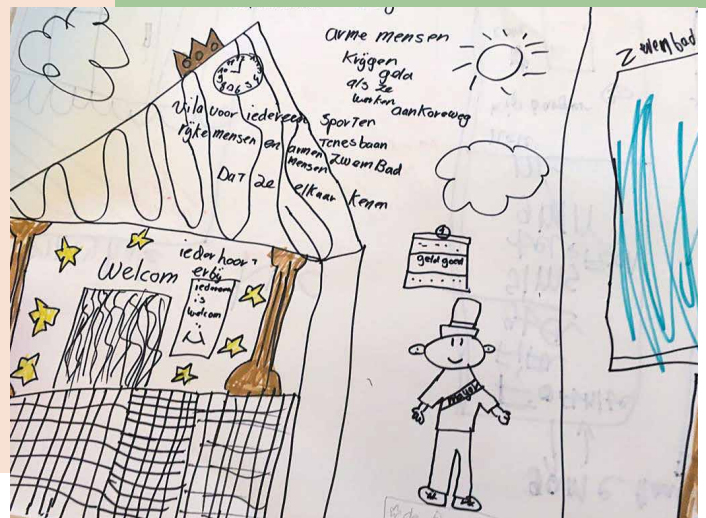 arme mensen
krijgen
geld
als ze
werken
aankoreweg
Vila voor iedereen
rijke mensen en armen mensen
Dat ze elkaar kenen
sporten
Tenesbaan
Zwembad
iederhoort
erbij
Welcom
iedereen
is
welcom
geld goed
mayor
Zwembad